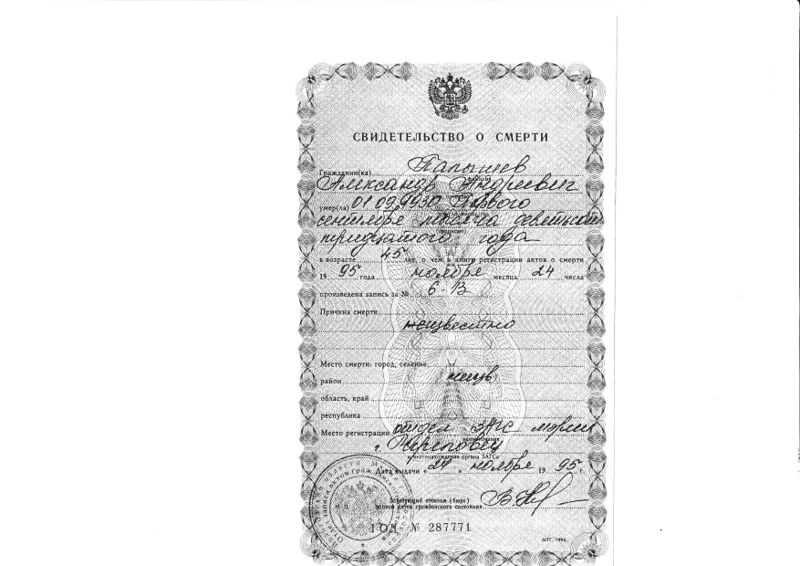 СВИДЕТЕЛЬСТВО О СМЕРТИ
Гражданин(ка)
Александр Андреевич
умер(ла) 01.09.1930 Первого
сентября месяца девятьсот
тридцатого года
в возрасте 45 лет, о чем в книге регистрации актов о смерти
19 95 года ноября месяца 24 числа
произведена запись за № 6-В
Причина смерти
неизвестно
Место смерти: город, селение
район неизв
область, край
республика
Место регистрации отдел ЗАГС мэрии
г. Череповец
местонахождение органа ЗАГСа
Дата выдачи « 24 » ноября 19 95 г.
Заведующий отделом (бюро)
записи актов гражданского состояния
№ 287771